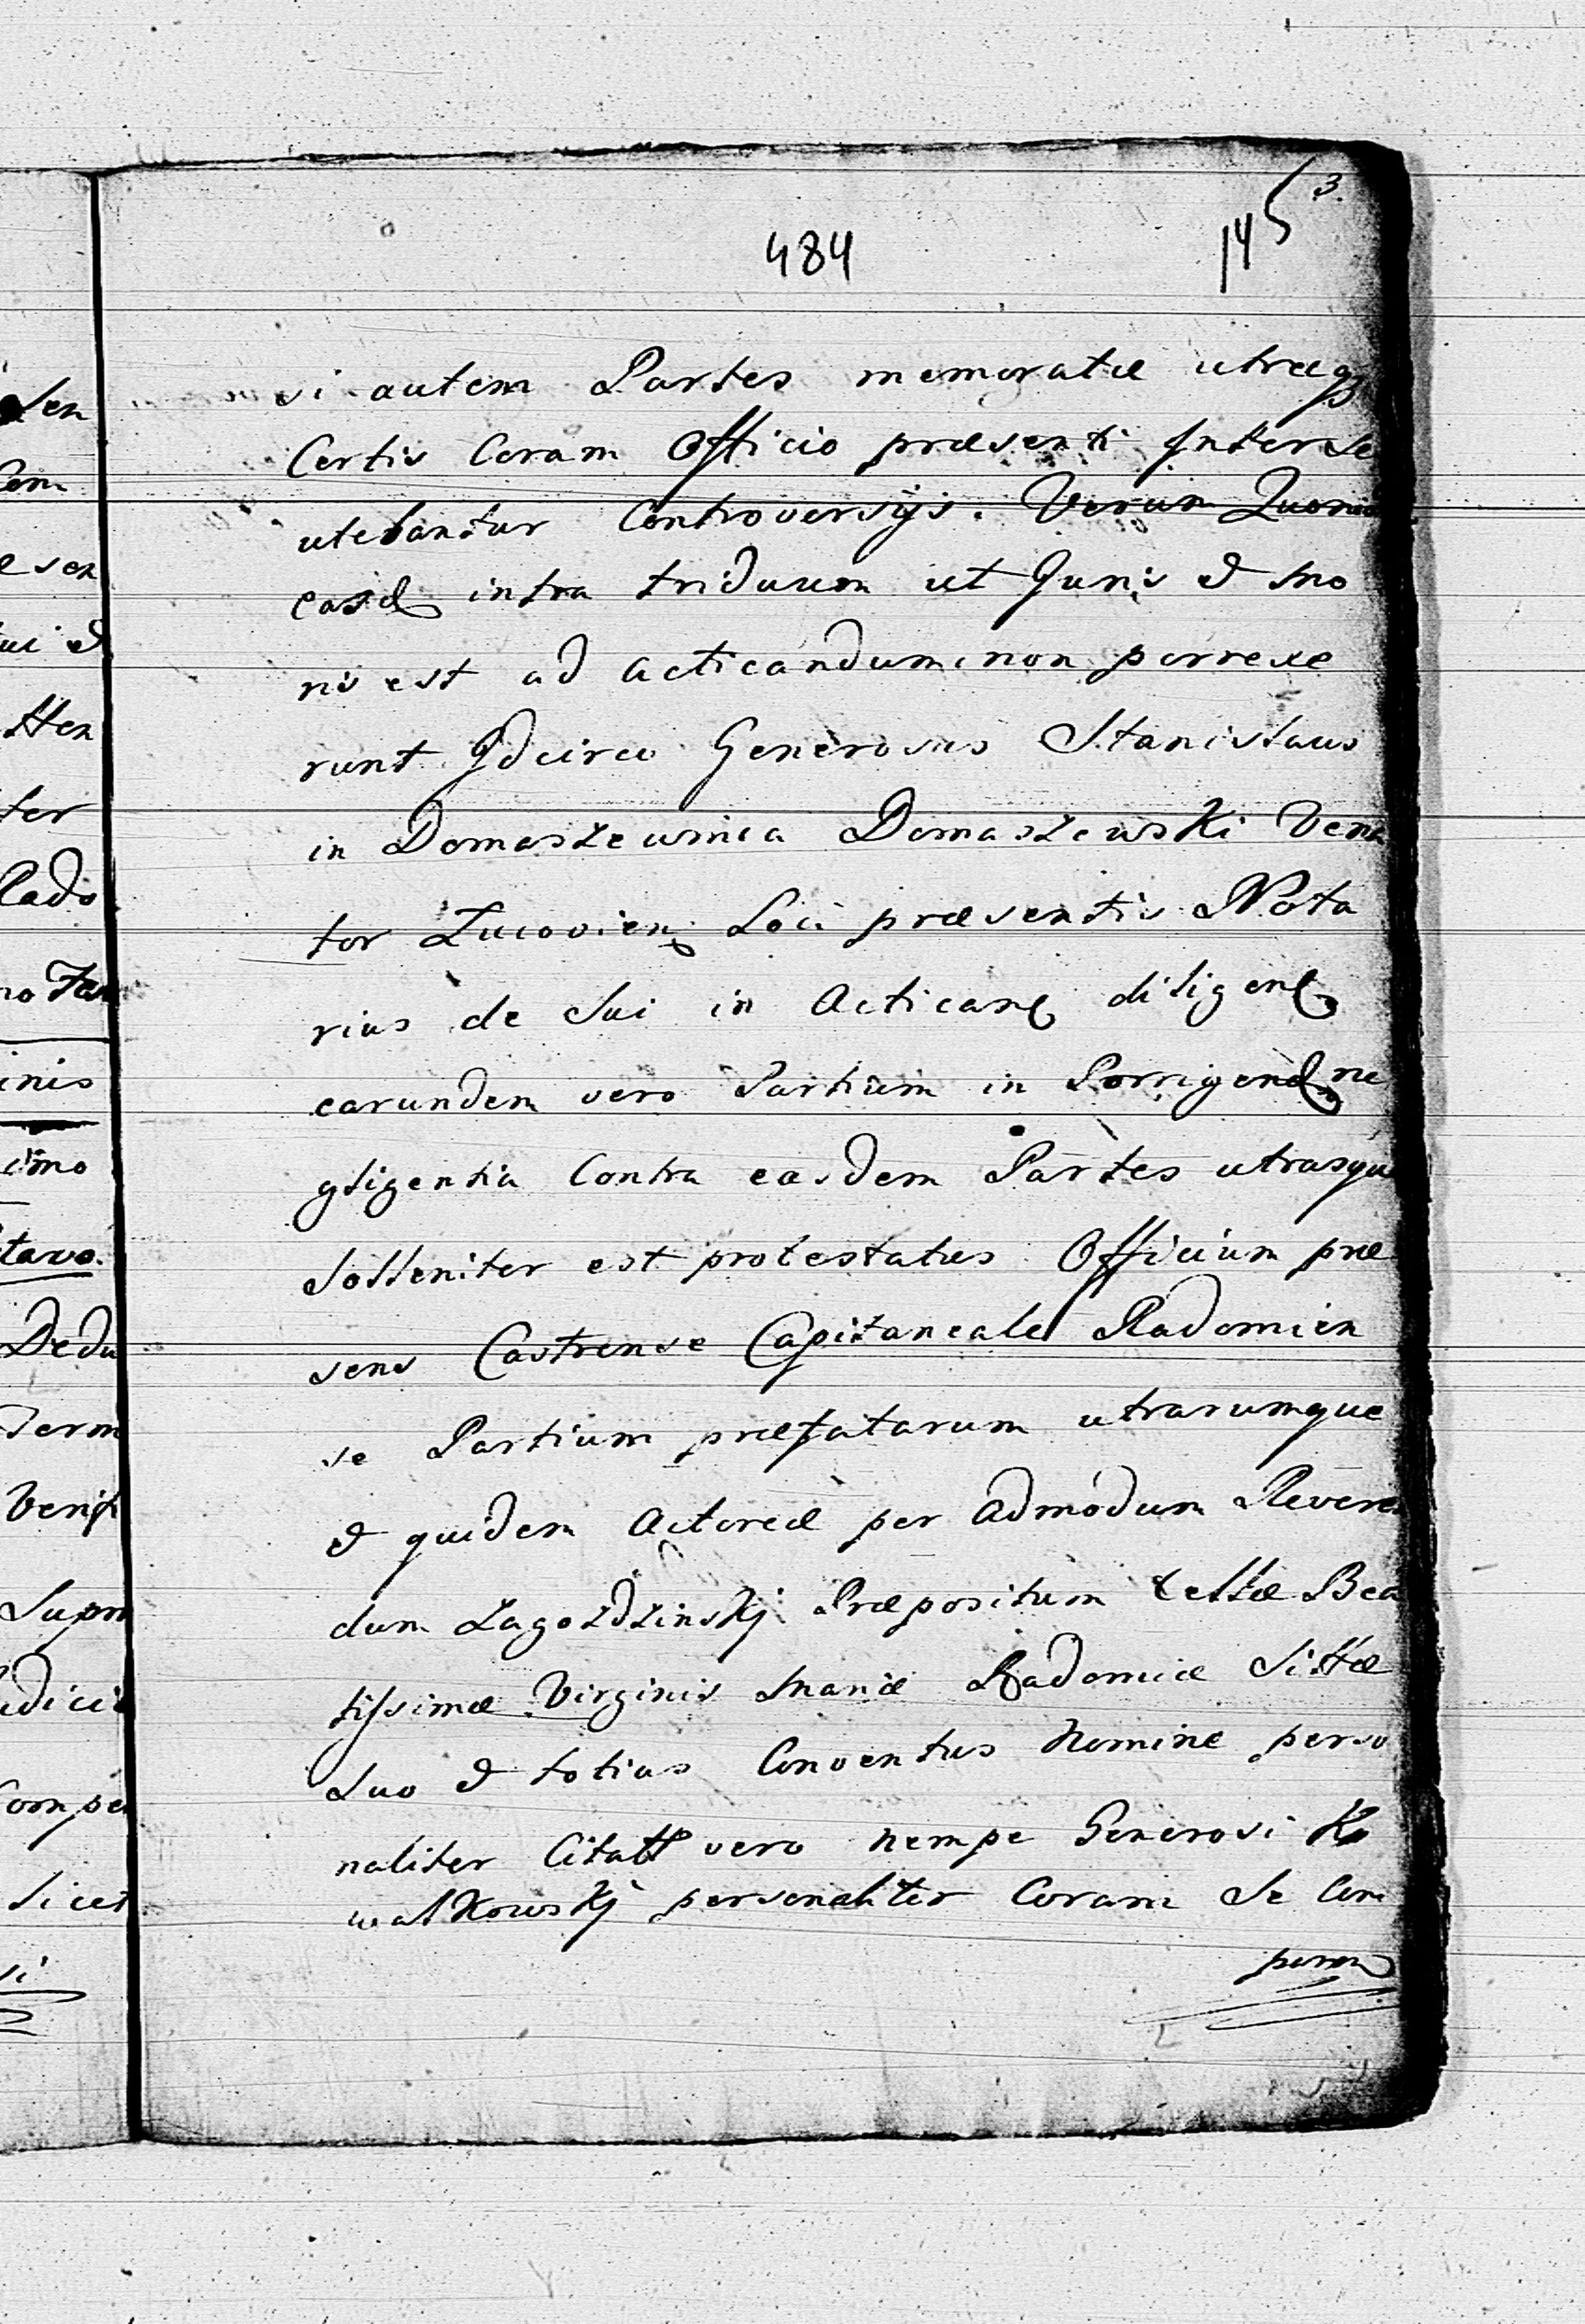 3.
145
484
si autem Partes memoratæ utræq
Certis Coram Officio præsenti Inter se
utebantur Controversijs. Verum Quoni
easd intra triduum ut Juris & Mo
ris est ad acticandum non porrexe
runt Idcirco Generosus Stanislaus
in Domaszewnica Domaszewski Vena
tor Lucovien Loci præsentis Nota
rius de Sui in Acticand diligen
earundem vero Partium in Porrigend ne
gligentia Contra easdem Partes utrasque
Solleniter est protestatus Officium præ
sens Castrense Capitaneale Radomien
se Partium præfatarum utrarumque
& quidem Actoreæ per Admodum Reveren
dum Zagozdzinskj Præpositum Cellæ Bea
tissimæ Virginis Mariæ Radomiæ Sittæ
Suo & totius Conventus Nomine perso
naliter Citatt vero nempe Generosi Ko
walkowskj personaliter Coram Se Com
paren
Sen
esen
ter
Rado
inis
tavo.
Dedu
Term
Supra
Compa
Licet
si